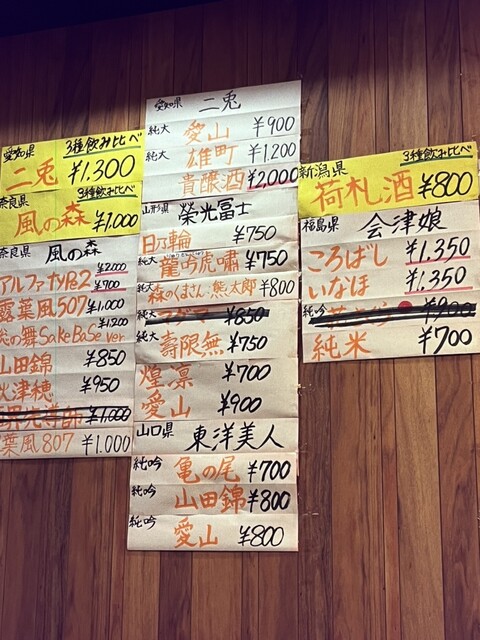 愛知県 3種飲み比べ
二兎 ¥1.300
奈良県 3種飲み比べ
風の森 ¥1.000
奈良県 風の森
アルファ ¥2.000
¥700
露葉風507 ¥1.000
¥1.200
の舞SakeBaSe ver.
山田錦 ¥850
秋津穂 ¥950
¥1.000
葉風807 ¥1.000
愛知県 二兎
純大 愛山 ¥900
純大 雄町 ¥1.200
貴醸酒 ¥2.000
山形県 榮光冨士
日乃輪 ¥750
純大 龍吟虎嘯 ¥750
純大 森のくまさん 熊太郎 ¥800
純大 ¥850
純大 壽限無 ¥750
煌凛 ¥700
愛山 ¥900
山口県 東洋美人
純吟 亀の尾 ¥700
純吟 山田錦 ¥800
純吟 愛山 ¥800
新潟県 3種飲み比べ
荷札酒 ¥800
福島県 会津娘
ころばし ¥1.350
いなほ ¥1.350
純吟 ¥900
純米 ¥700